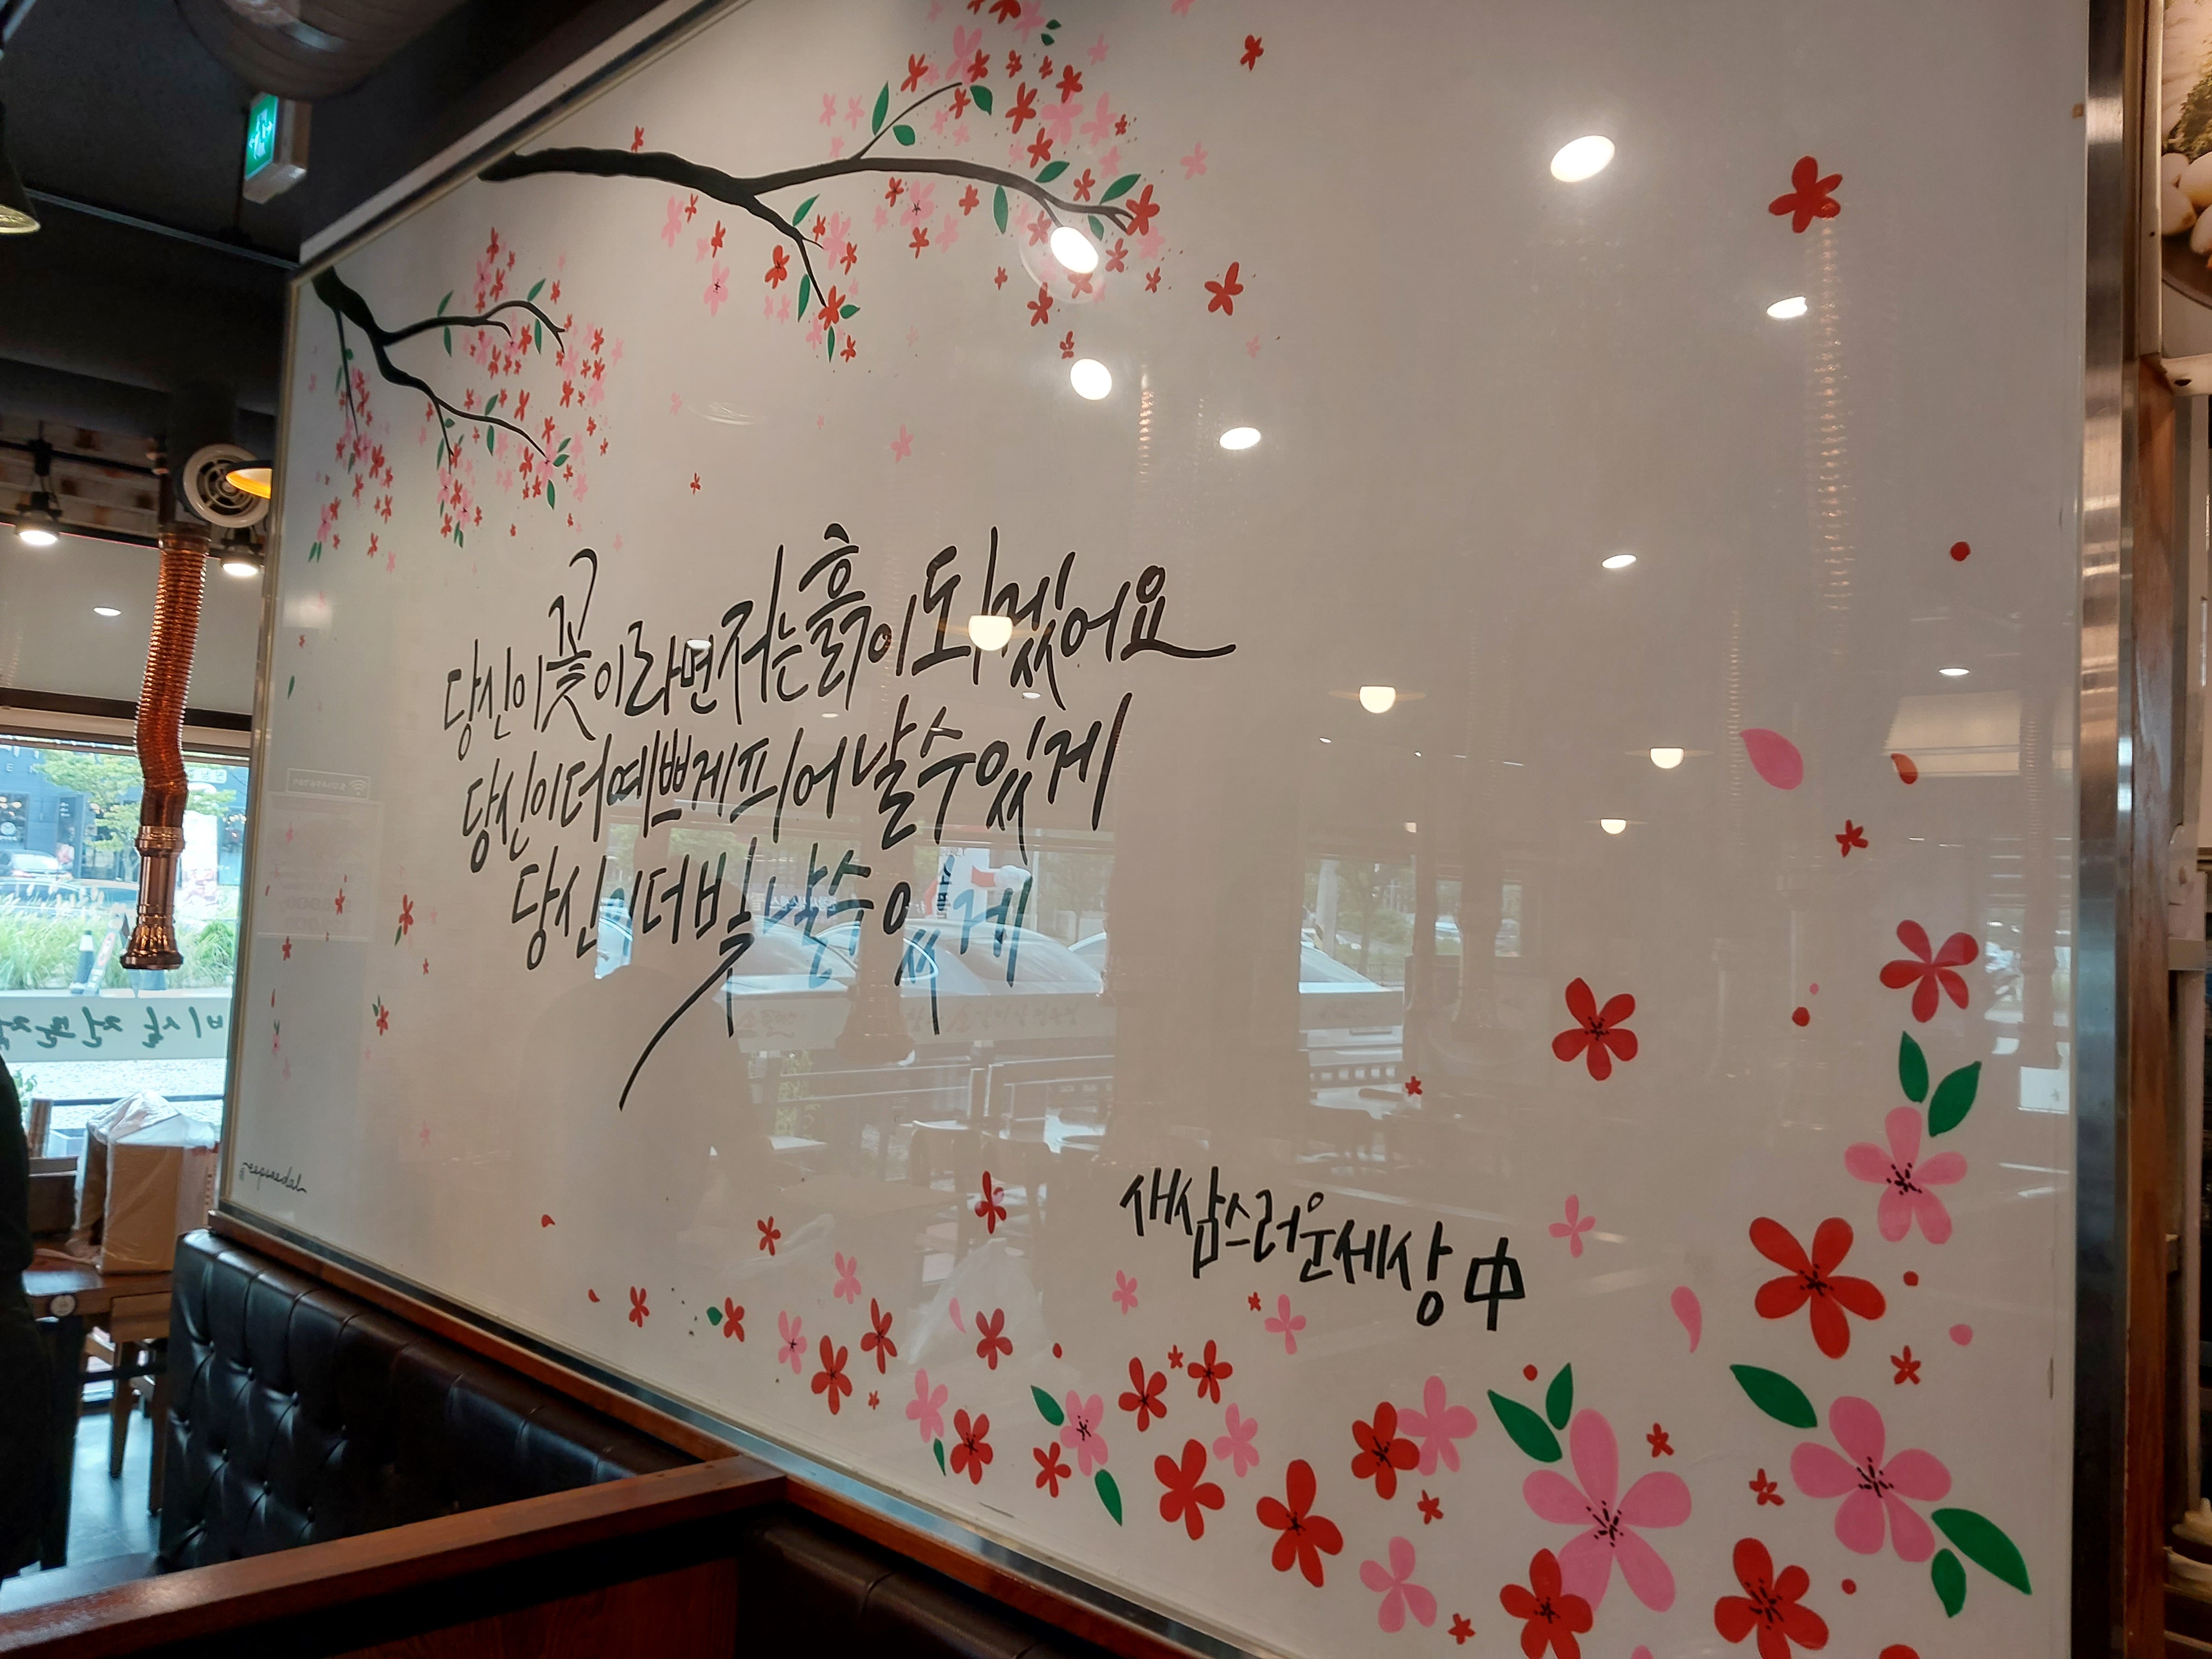 당신이 꽃이라면 저는 흙이 되겠어요
당신이 더 예쁘게 피어날 수 있게
당신이 더 빛날 수 있게
새삼스러운 세상 中